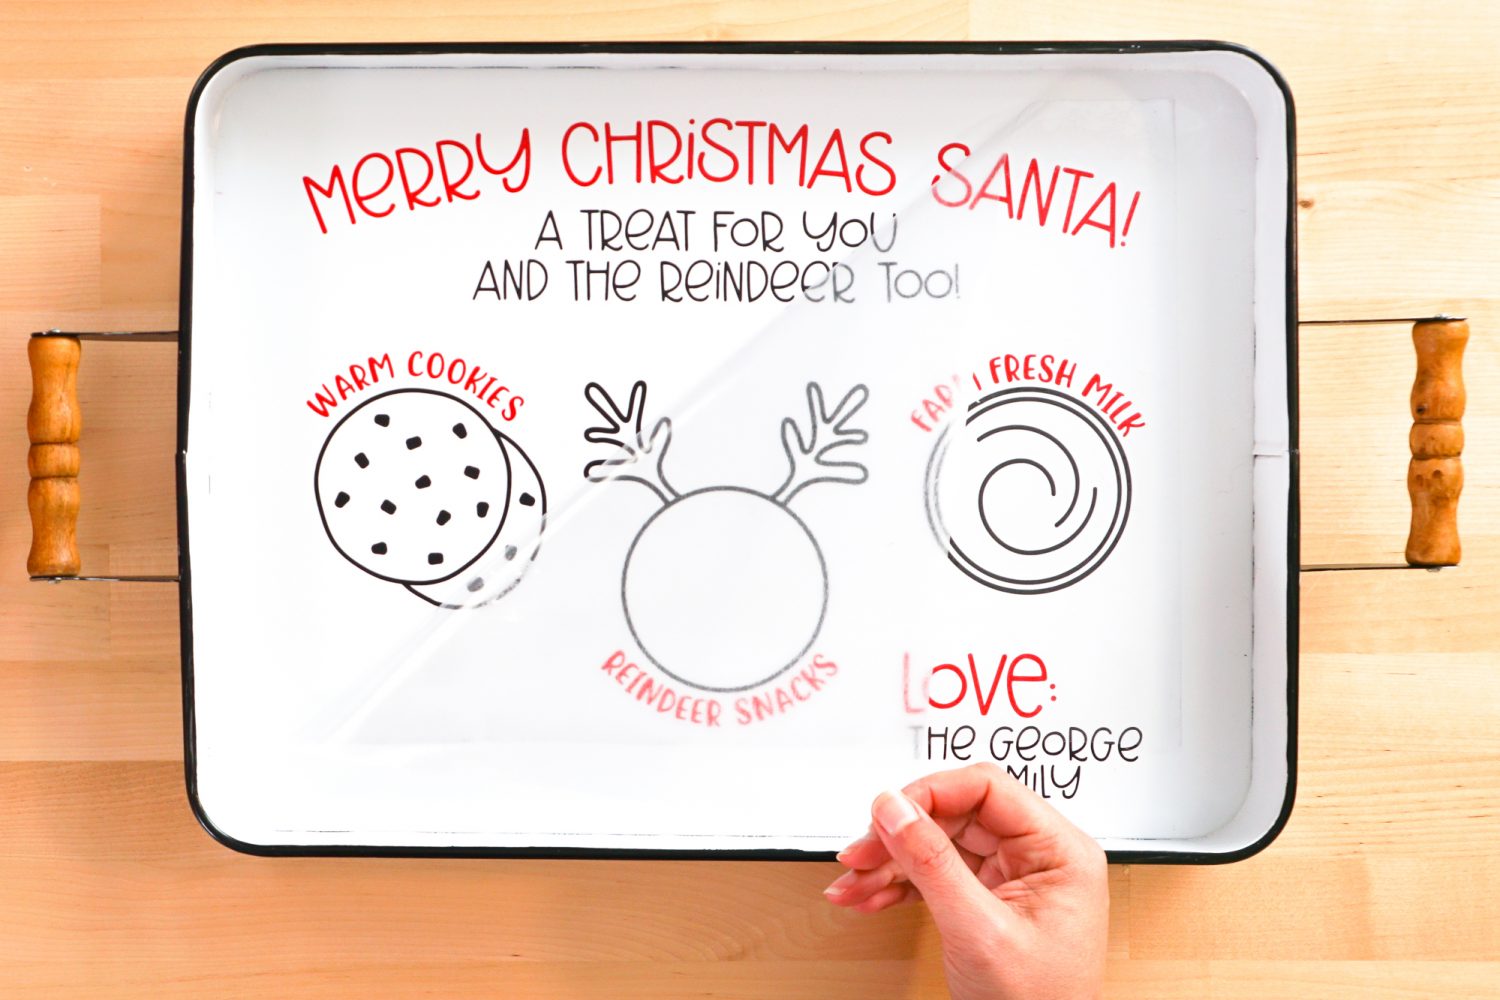 MERRY CHRISTMAS SANTA!
A TREAT FOR YOU
AND THE REINDEER TOO!
WARM COOKIES
FARM FRESH MILK
REINDEER SNACKS
LOVE:
THE GEORGE
MILY